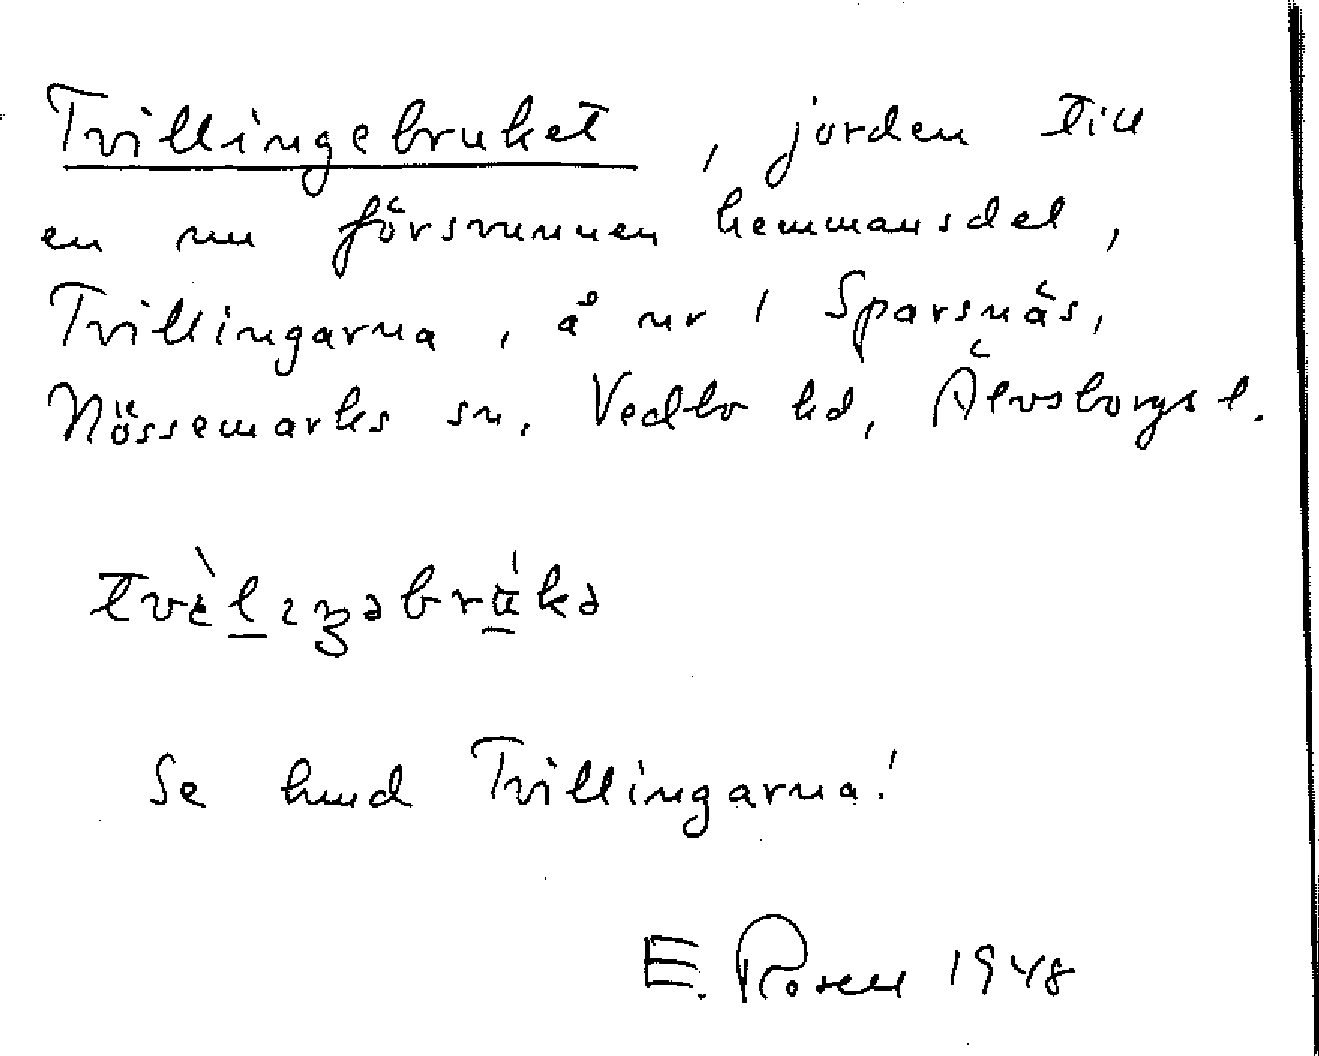 Trillingebruket, jorden till
en nu försvunnen hemmansdel,
Trillingarna, å nr 1 Sparsnäs,
Nössemarks sn, Vedbo hd, Älvsborgs l.
Se Trillingarna!
E. Rosell 1948